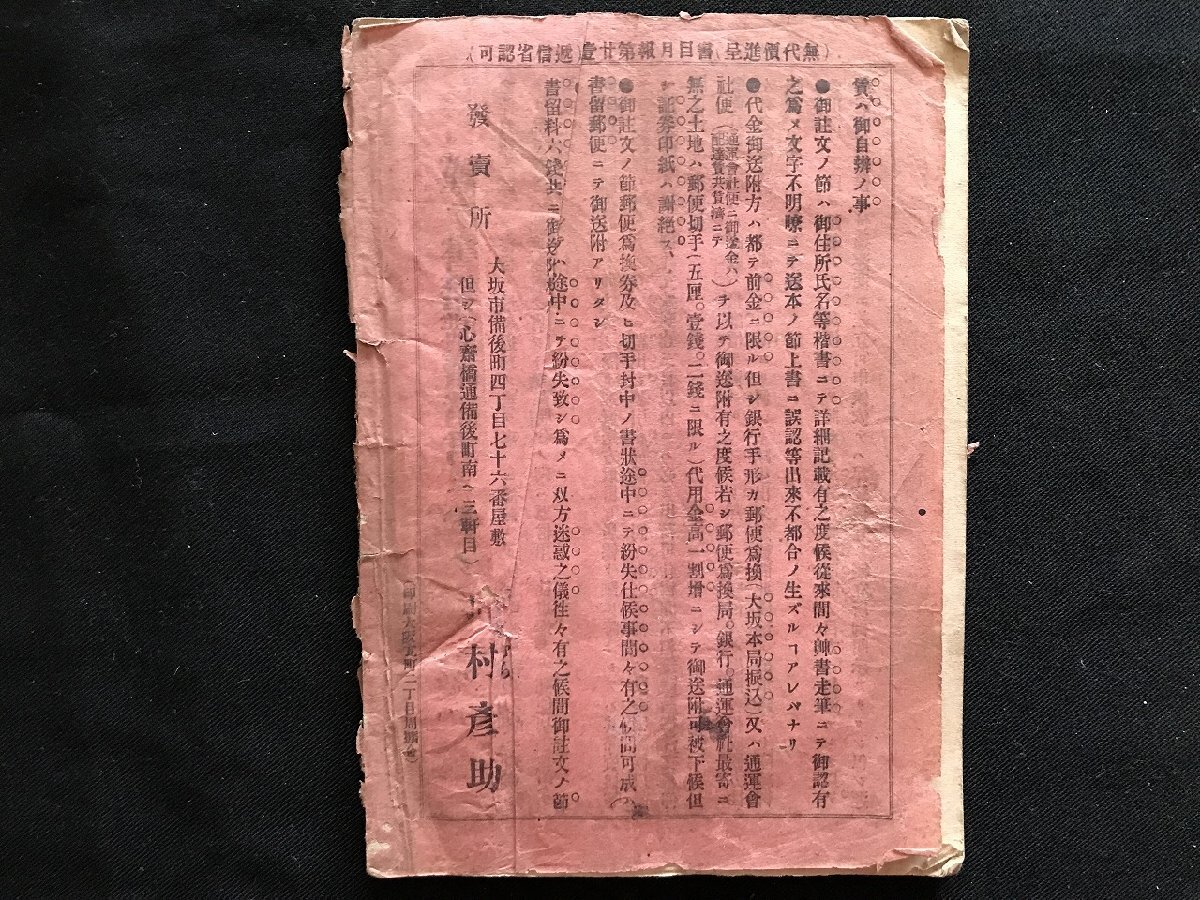 (無代價進呈)書目月報第廿壹(遞信省認可)
賃ハ御自辨ノ事
●御註文ノ節ハ御住所氏名等楷書ニテ詳細記載有之度候從來間々草書走筆ニテ御認有
之爲メ文字不明瞭ニテ送本ノ節上書ニ誤認等出來不都合ノ生ズルヿアレバナリ
●代金御送附方ハ都テ前金ニ限ル但シ銀行手形カ郵便爲換(大坂本局振込)又ハ通運會
社便(通運會社便ニ御送金ハ配達賃共賃濟ニテ)ヲ以テ御送附有之度候若シ郵便爲換局。銀行。通運會社最寄ニ
無之土地ハ郵便切手(五厘。壹錢。二錢ニ限ル)代用金高一割增ニシテ御送附可被下候但
シ証券印紙ハ謝絕ス
●御註文ノ節郵便爲換券及ヒ切手封中ノ書狀途中ニテ紛失仕候事間々有之候間可成ハ
書留郵便ニテ御送附アリタシ
書留料六錢共ニ御送附 途中ニテ紛失致シ爲メニ双方迷惑之儀往々有之候間御註文ノ節
發賣所
大坂市備後町四丁目七十六番屋敷
但シ(心齋橋通備後町南ヘ三軒目)
村彥助